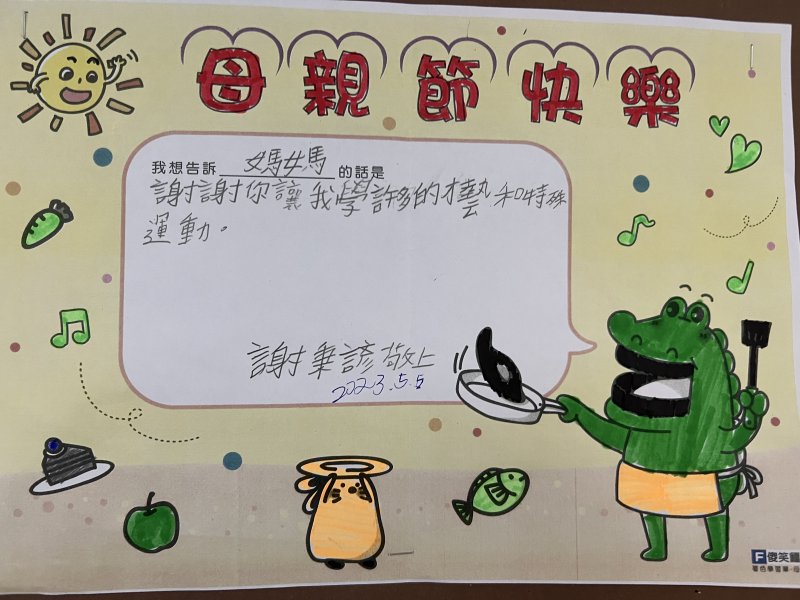 母親節快樂
我想告訴 媽媽 的話是
謝謝你讓我學許多的才藝和特殊
運動。
謝秉諺敬上
2023.5.5
F 傻笑鱷
著色學習單-母